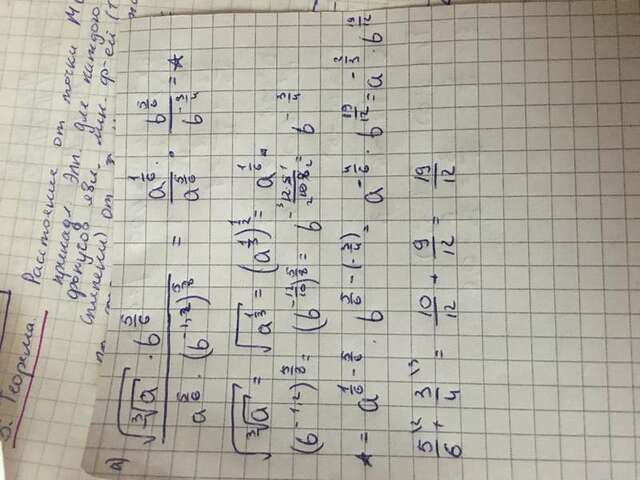 3. Теорема. Расстояние от точки
принадл. Элл. для каждого
фокусов явл. лин. ф-ей (1
от
а) \frac{\sqrt{\sqrt[3]{a}} \cdot b^{\frac{5}{6}}}{a^{\frac{5}{6}} \cdot (b^{-1,2})^{\frac{5}{8}}} = \frac{a^{\frac{1}{6}}}{a^{\frac{5}{6}}} \cdot \frac{b^{\frac{5}{6}}}{b^{-\frac{3}{4}}} = ☆
\sqrt{\sqrt[3]{a}} = \sqrt{a^{\frac{1}{3}}} = (a^{\frac{1}{3}})^{\frac{1}{2}} = a^{\frac{1}{6}}.
(b^{-1,2})^{\frac{5}{8}} = (b^{-\frac{12}{10}})^{\frac{5}{8}} = b^{-\frac{12 \cdot 5}{10 \cdot 8}} = b^{-\frac{3}{4}}
☆ = a^{\frac{1}{6} - \frac{5}{6}} \cdot b^{\frac{5}{6} - (-\frac{3}{4})} = a^{-\frac{4}{6}} \cdot b^{\frac{19}{12}} = a^{-\frac{2}{3}} \cdot b^{\frac{19}{12}}
\frac{5}{6}^{\backslash 2} + \frac{3}{4}^{\backslash 3} = \frac{10}{12} + \frac{9}{12} = \frac{19}{12}